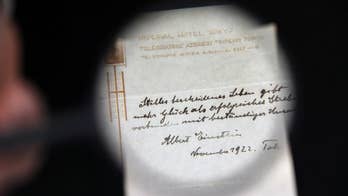 IMPERIAL HOTEL TOKYO
TELEGRAPHIC ADDRESS
Stilles bescheidenes Leben gibt
mehr Glück als erfolgreiches
verbunden mit beständiger
Albert Einstein
November 1922.